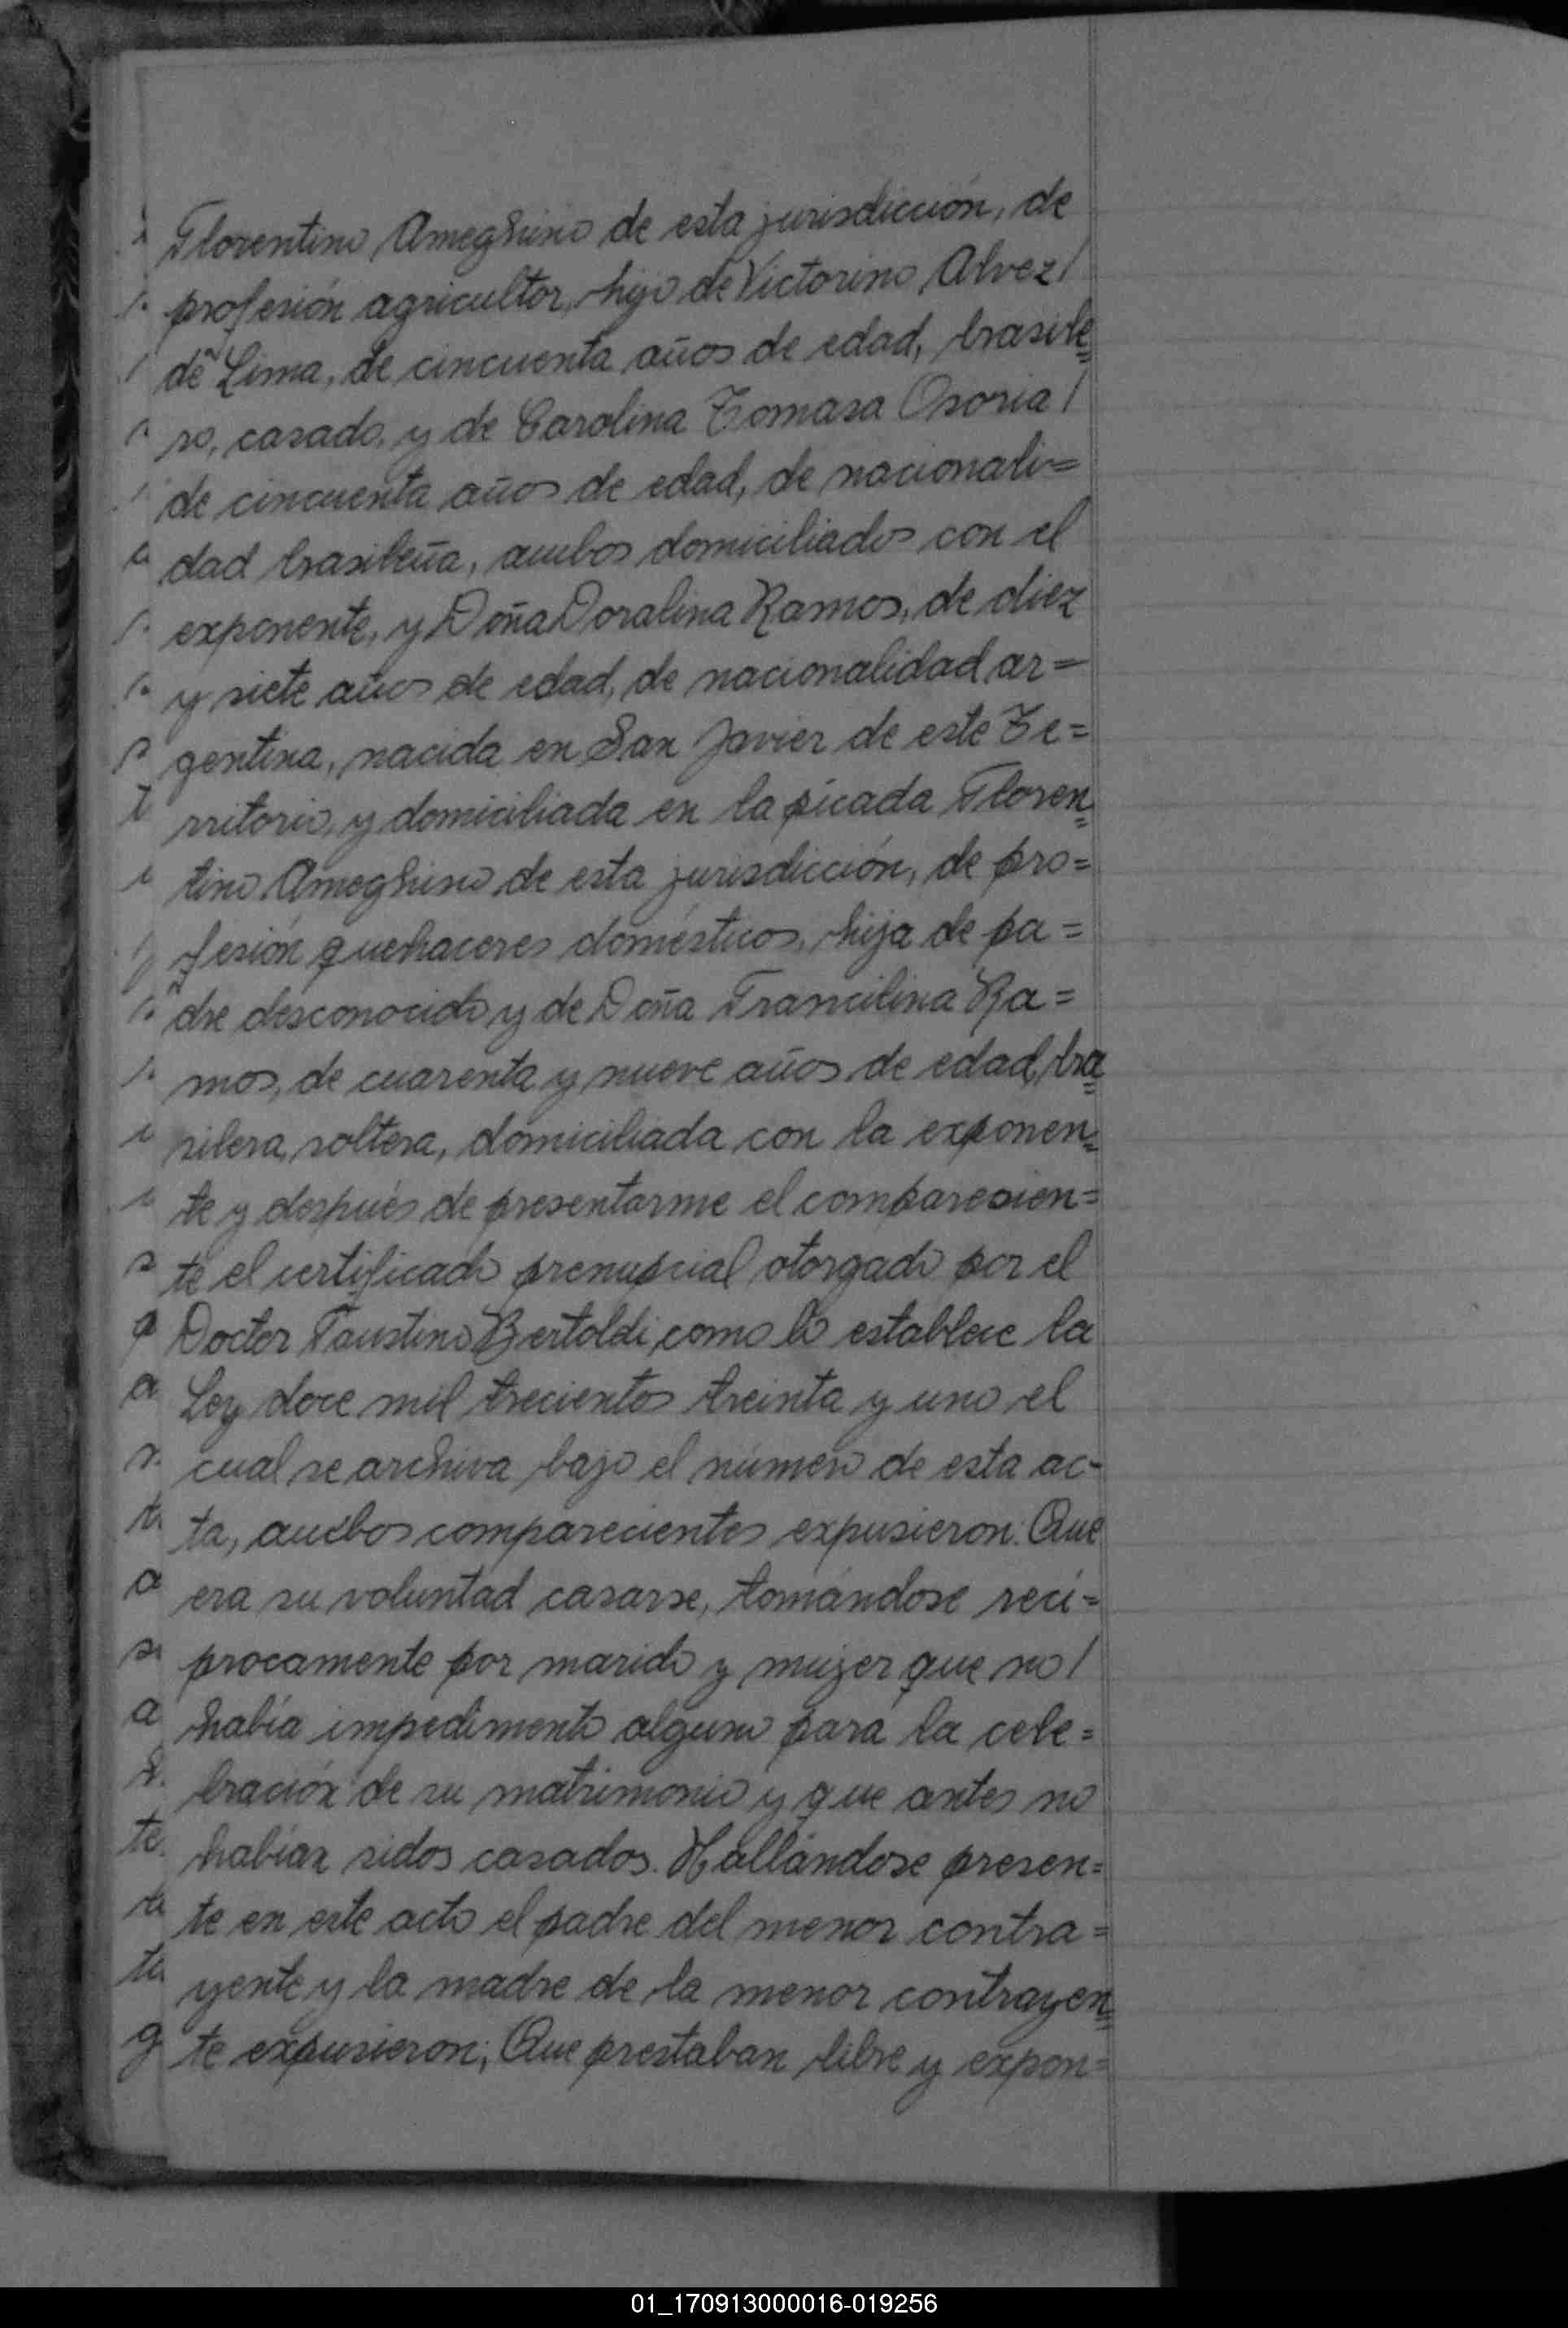 Florentino Ameghino de esta jurisdicción, de
profesión agricultor, hijo de Victorino Alvez/
de Lima, de cincuenta años de edad, brasile=
ro, casado, y de Carolina Tomasa Osoria/
de cincuenta años de edad, de nacionali=
dad brasileña, ambos domiciliados con el
exponente, y Doña Doralina Ramos, de diez
y siete años de edad, de nacionalidad ar=
gentina, nacida en San Javier de este Te=
rritorio, y domiciliada en la picada Floren=
tino Ameghino de esta jurisdicción, de pro=
fesión quehaceres domésticos, hija de pa=
dre desconocido y de Doña Francilina Ra=
mos, de cuarenta y nueve años de edad, bra=
silera, soltera, domiciliada con la exponen=
te y después de presentarme el comparecien=
te el certificado prenupcial otorgado por el
Doctor Faustino Bertoldi, como lo establece la
Ley doce mil trecientos treinta y uno el
cual se archiva bajo el número de esta ac-
ta, ambos comparecientes expusieron: Que
era su voluntad casarse, tomándose recí=
procamente por marido y mujer que no/
había impedimento alguno para la cele=
bración de su matrimonio y que antes no
habían sidos casados. Hallándose presen=
te en este acto el padre del menor contra=
yente y la madre de la menor contrayen=
te expusieron; Que prestaban libre y expon=
01_170913000016-019256